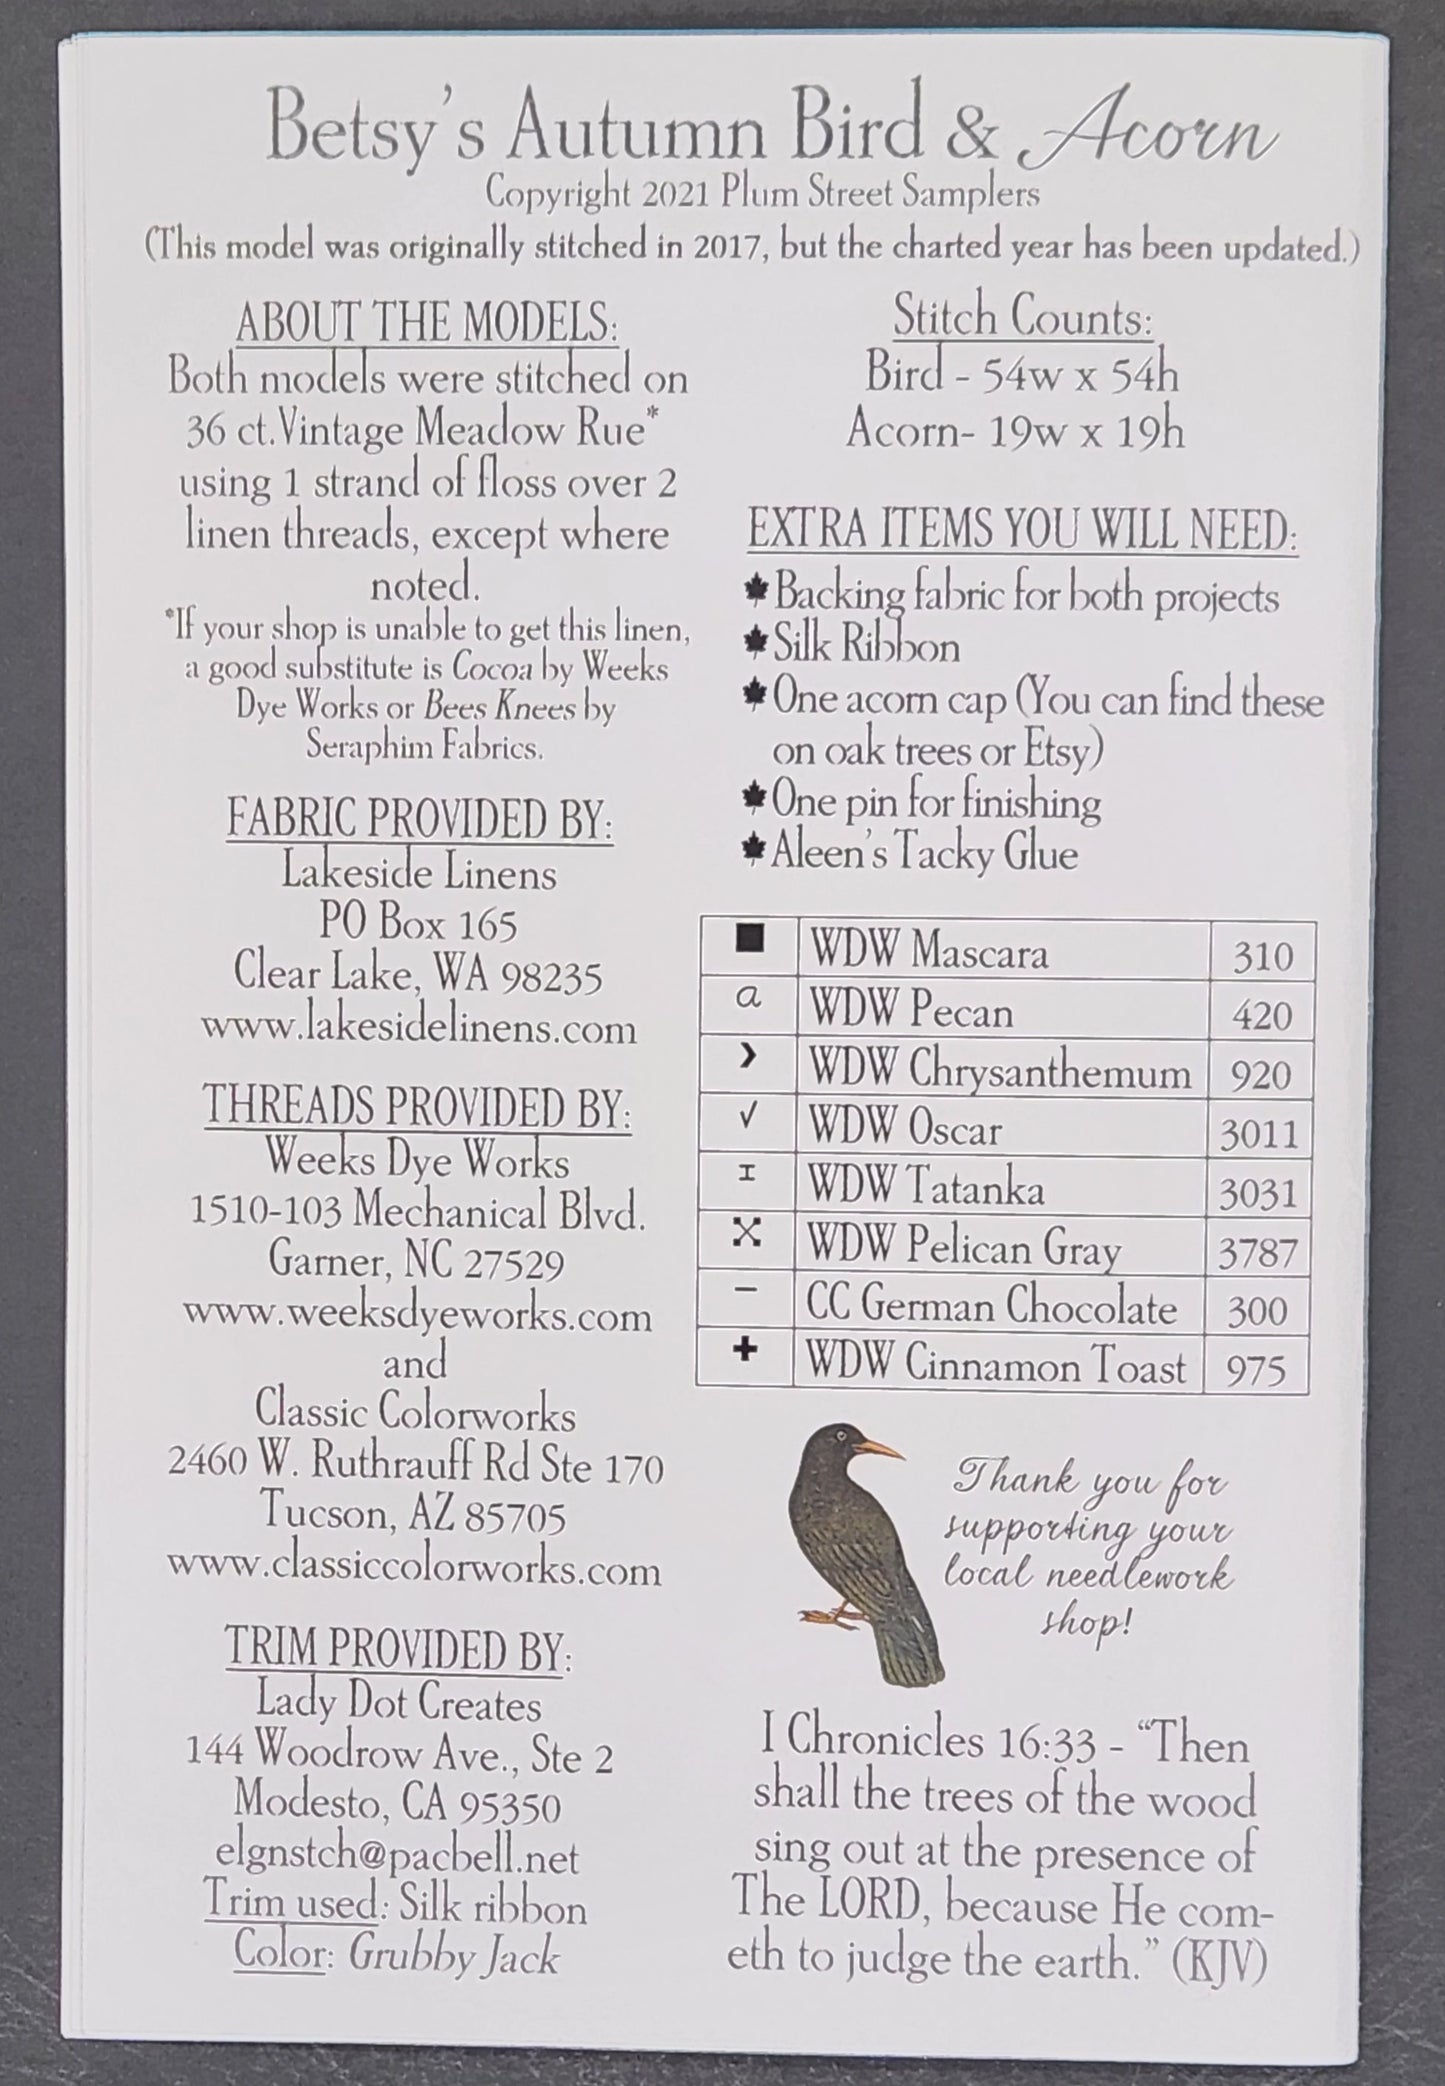 Betsy's Autumn Bird & Acorn
Copyright 2021 Plum Street Samplers
(This model was originally stitched in 2017, but the charted year has been updated.)
ABOUT THE MODELS:
Both models were stitched on
36 ct.Vintage Meadow Rue*
using 1 strand of floss over 2
linen threads, except where
noted.
*If your shop is unable to get this linen,
a good substitute is Cocoa by Weeks
Dye Works or Bees Knees by
Seraphim Fabrics.
FABRIC PROVIDED BY:
Lakeside Linens
PO Box 165
Clear Lake, WA 98235
www.lakesidelinens.com
THREADS PROVIDED BY:
Weeks Dye Works
1510-103 Mechanical Blvd.
Garner, NC 27529
www.weeksdyeworks.com
and
Classic Colorworks
2460 W. Ruthrauff Rd Ste 170
Tucson, AZ 85705
www.classiccolorworks.com
TRIM PROVIDED BY:
Lady Dot Creates
144 Woodrow Ave., Ste 2
Modesto, CA 95350
elgnstch@pacbell.net
Trim used: Silk ribbon
Color: Grubby Jack
Stitch Counts:
Bird - 54w x 54h
Acorn- 19w x 19h
EXTRA ITEMS YOU WILL NEED:
Backing fabric for both projects
Silk Ribbon
One acorn cap (You can find these
on oak trees or Etsy)
One pin for finishing
Aleen's Tacky Glue
■ WDW Mascara 310
a WDW Pecan 420
› WDW Chrysanthemum 920
√ WDW Oscar 3011
I WDW Tatanka 3031
X WDW Pelican Gray 3787
– CC German Chocolate 300
+ WDW Cinnamon Toast 975
Thank you for
supporting your
local needlework
shop!
I Chronicles 16:33 - “Then
shall the trees of the wood
sing out at the presence of
The LORD, because He com-
eth to judge the earth.” (KJV)